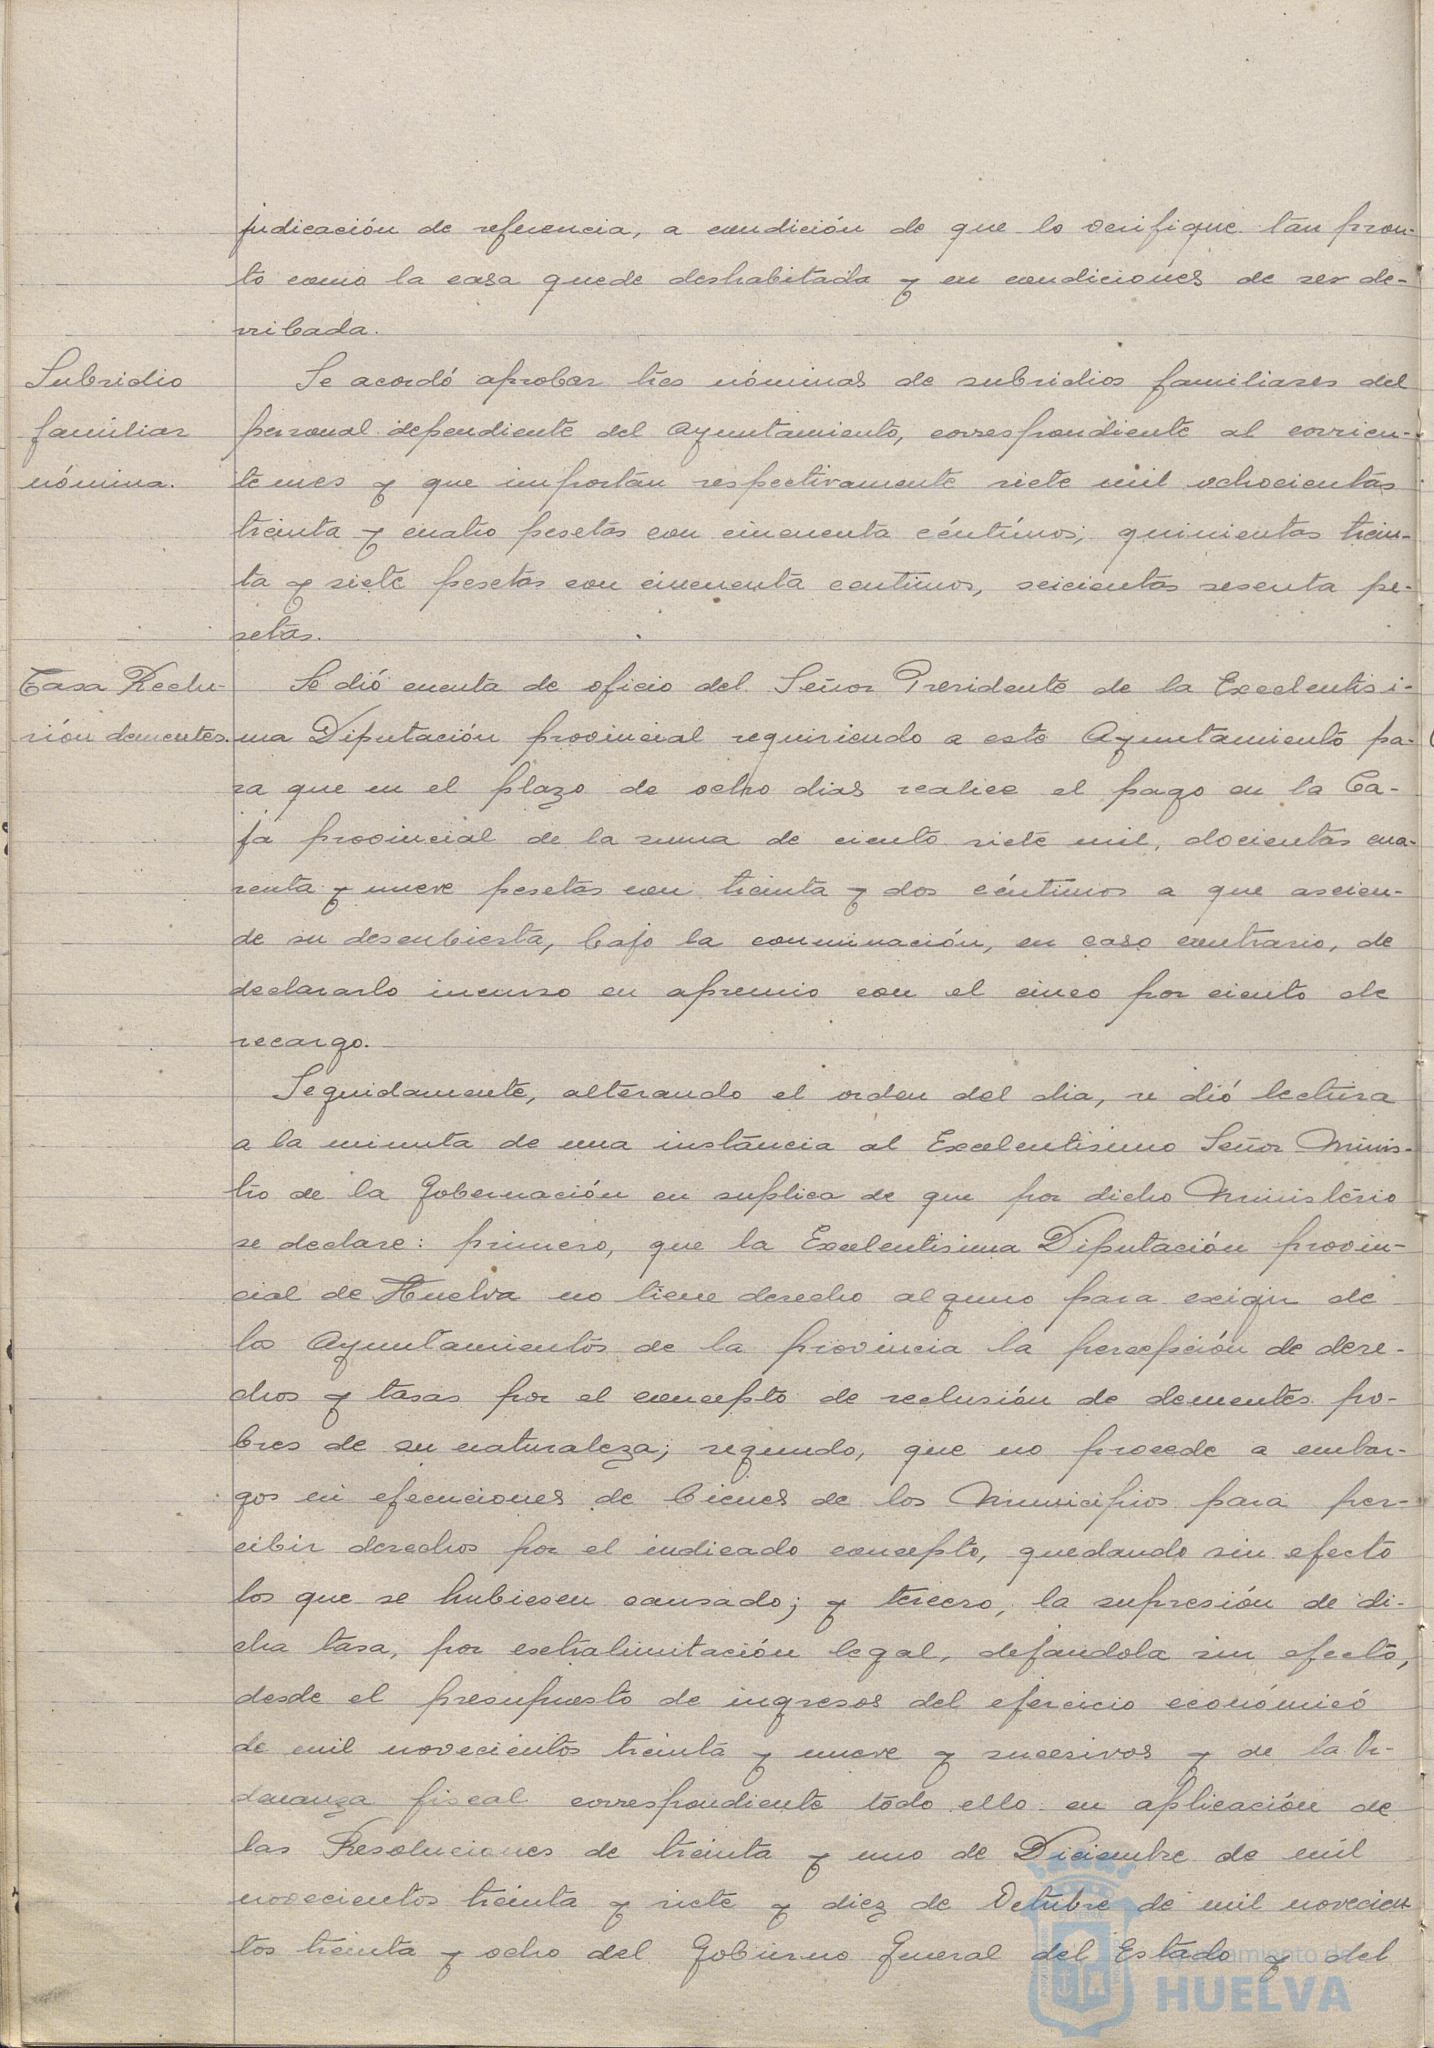 judicación de referencia, a condición de que lo verifique tan pron-
to como la casa quede deshabitada y en condiciones de ser de-
rribada.
Subsidio
familiar
nómina.
Se acordó aprobar tres nóminas de subsidios familiares del
personal dependiente del Ayuntamiento, correspondiente al corrien-
te mes y que importan respectivamente siete mil ochocientas
treinta y cuatro pesetas con cincuenta céntimos; quinientas trein-
ta y siete pesetas con cincuenta centimos, seicientas sesenta pe-
setas.
Tasa Reclu-
sión dementes.
Se dió cuenta de oficio del Señor Presidente de la Excelentisi-
ma Diputación provincial requiriendo a este Ayuntamiento pa-
ra que en el plazo de ocho dias realice el pago en la Ca-
ja provincial de la suma de ciento siete mil, docientas cua-
renta y nueve pesetas con treinta y dos céntimos a que ascien-
de su descubierta, bajo la conminación, en caso contrario, de
declararlo incurso en apremio con el cinco por ciento de
recargo.
Seguidamente, alterando el orden del dia, se dió lectura
a la minuta de una instancia al Excelentisimo Señor Minis-
tro de la Gobernación en suplica de que por dicho Ministerio
se declare: primero, que la Excelentisima Diputación provin-
cial de Huelva no tiene derecho alguno para exigir de
los Ayuntamientos de la provincia la percepción de dere-
chos y tasas por el concepto de reclusión de dementes po-
bres de su naturaleza; segundo, que no procede a embar-
gos en ejecuciones de bienes de los Municipios para per-
cibir derechos por el indicado concepto, quedando sin efecto
los que se hubiesen causado; y tercero, la supresión de di-
cha tasa, por extralimitación legal, dejandola sin efecto,
desde el presupuesto de ingresos del ejercicio económico
de mil novecientos treinta y nueve y sucesivos y de la Or-
denanza fiscal correspondiente todo ello en aplicación de
las Resoluciones de treinta y uno de Diciembre de mil
novecientos treinta y siete y diez de Octubre de mil novecien
tos treinta y ocho del Gobierno General del Estado y del
Ayuntamiento de
HUELVA